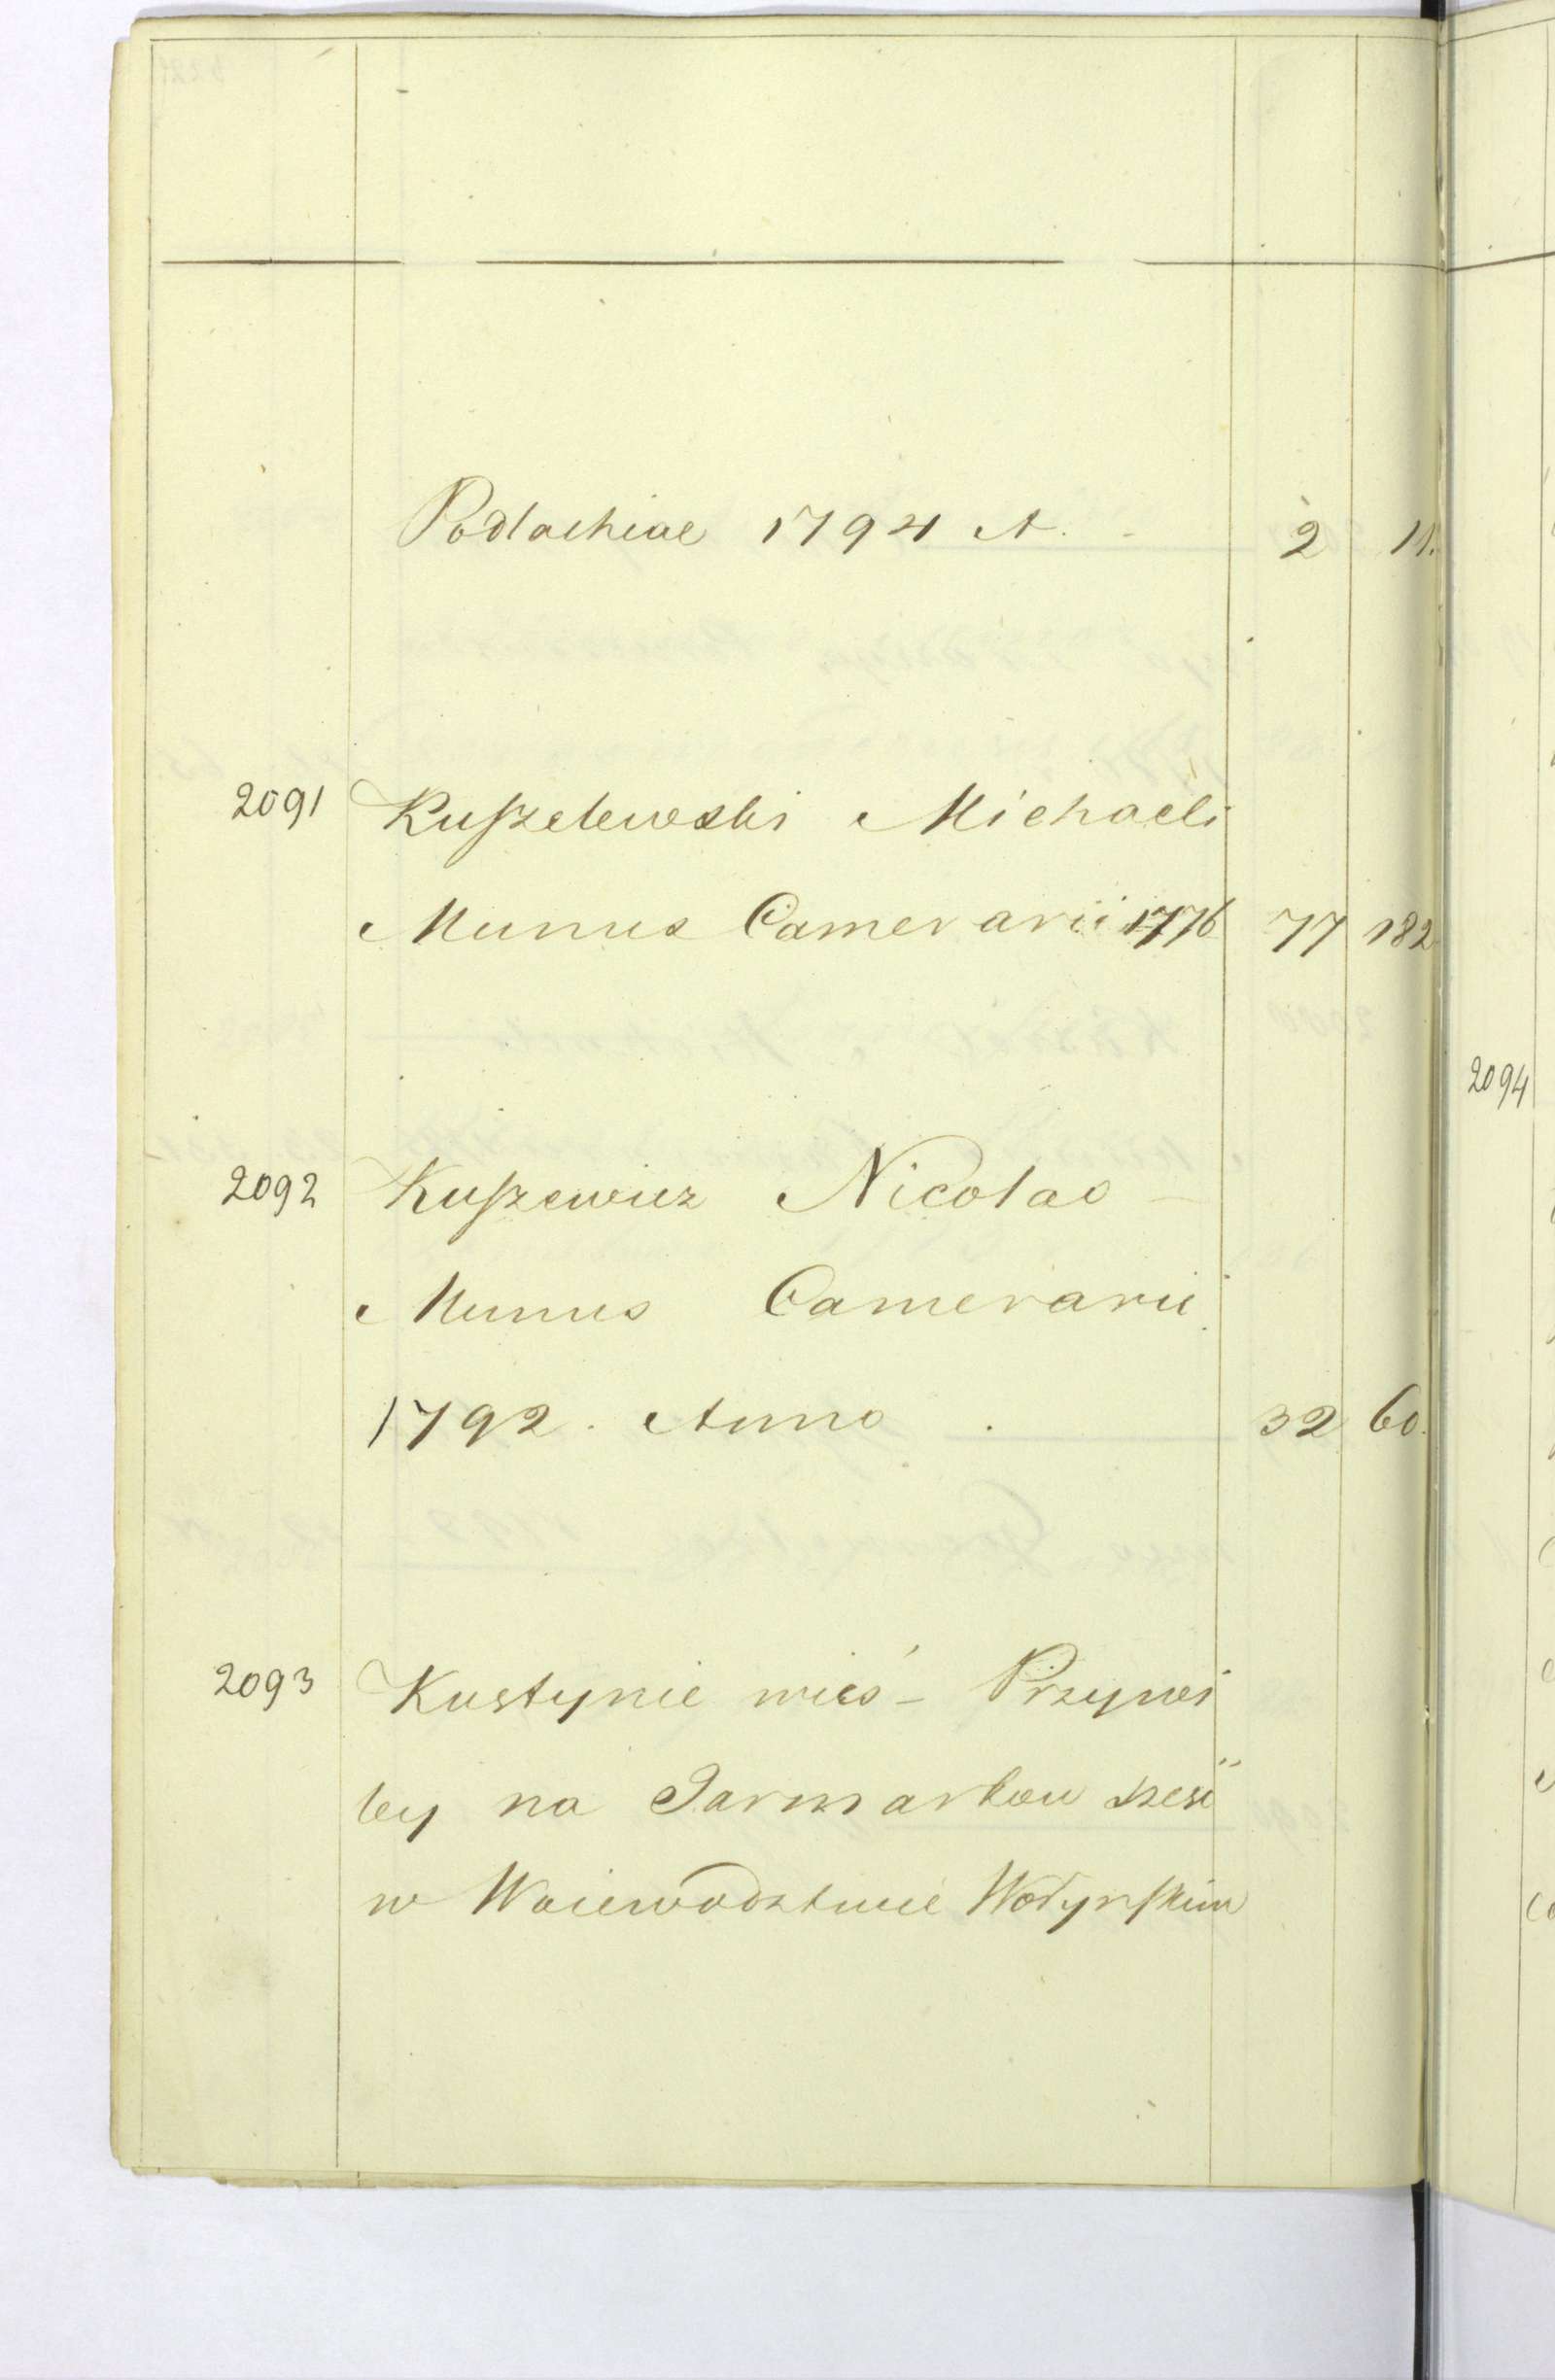 Podlachiae 1794 A. 2 11.
2091 Kuszelewski Michaeli
Munus Camerarii 1776 77 182
2092 Kuszewicz Nicolao
Munus Camerarii
1792. Anno 32 60.
2093 Kustynie wieś - Przywi
ley na Jarmarkow sześć
w Woiewodztwie Wołyńskim
2094